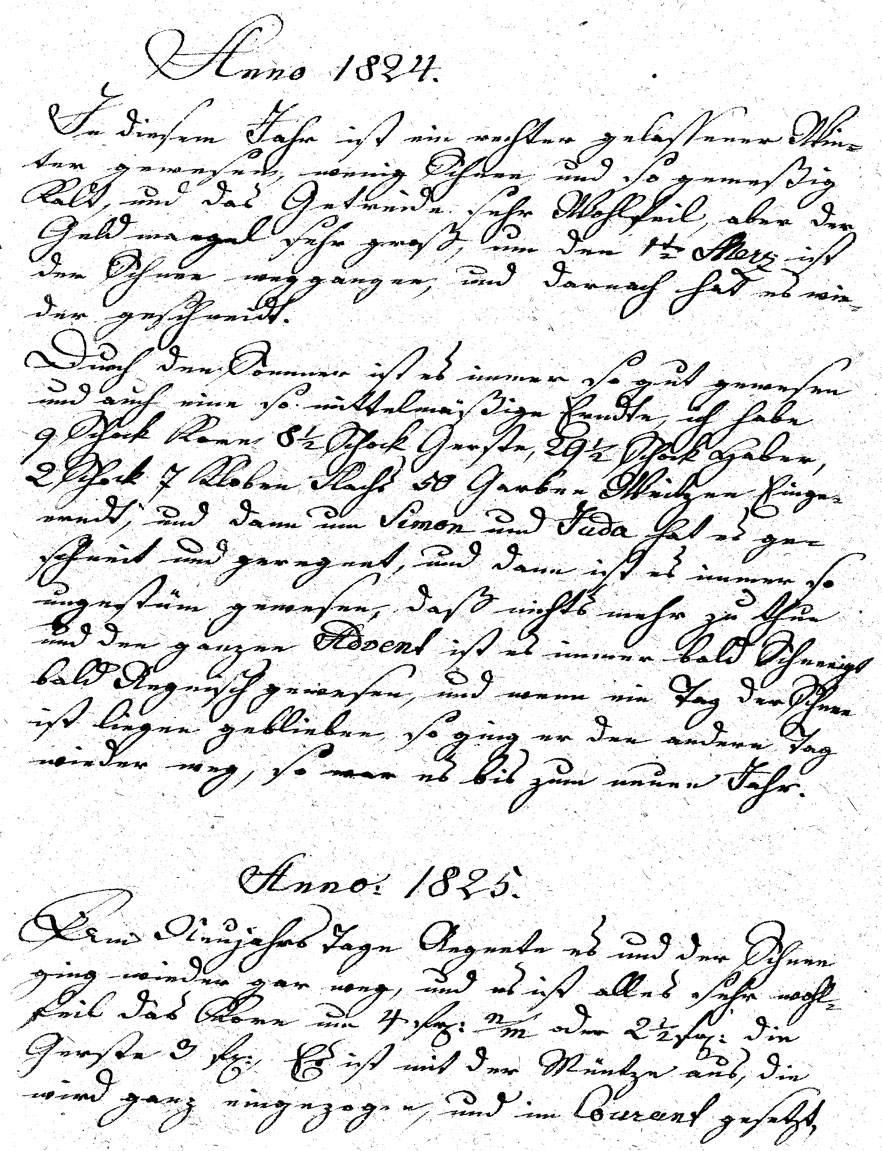 Anno 1824.
In diesem Jahr ist ein rechter gelassener Win-
ter gewesen, wenig Schnee und so gemeßig
Kalt, und das Getreide sehr Wohlfeil, aber der
Geld mangel sehr groß, um den 1te Merz ist
der Schnee weggangen, und darnach hat es wie-
der geschneidt.
Durch den Sommer ist es immer so gut gewesen
und auch eine so mittelmäßige Erndte, ich habe
9 Schock Korn, 8½ Schock Gerste, 29½ Schock Haber,
2 Schock 7 Kloben Flachs 50 Garben Weitzen Einge-
erndt, und dann um Simon und Juda hat es ge-
schneit und geregnet, und dann ist es immer so
ungestüm gewesen, daß nichts mehr zu thun
und den ganzen Advent ist es immer bald Schneeigt
bald Regnisch gewesen, und wenn ein Tag der Schnee
ist liegen geblieben, so ging er den andern Tag
wieder weg, so war es bis zum neuen Jahr.
Anno: 1825.
Am Neujahrs Tage Regnete es und der Schnee
ging wieder gar weg, und es ist alles sehr wohl-
feil das Korn um 4 fl: oder 2½ fl: die
Gerste 3 fl: Es ist mit der Müntze aus, die
wird ganz eingezogen, und im Courant gesetzt,